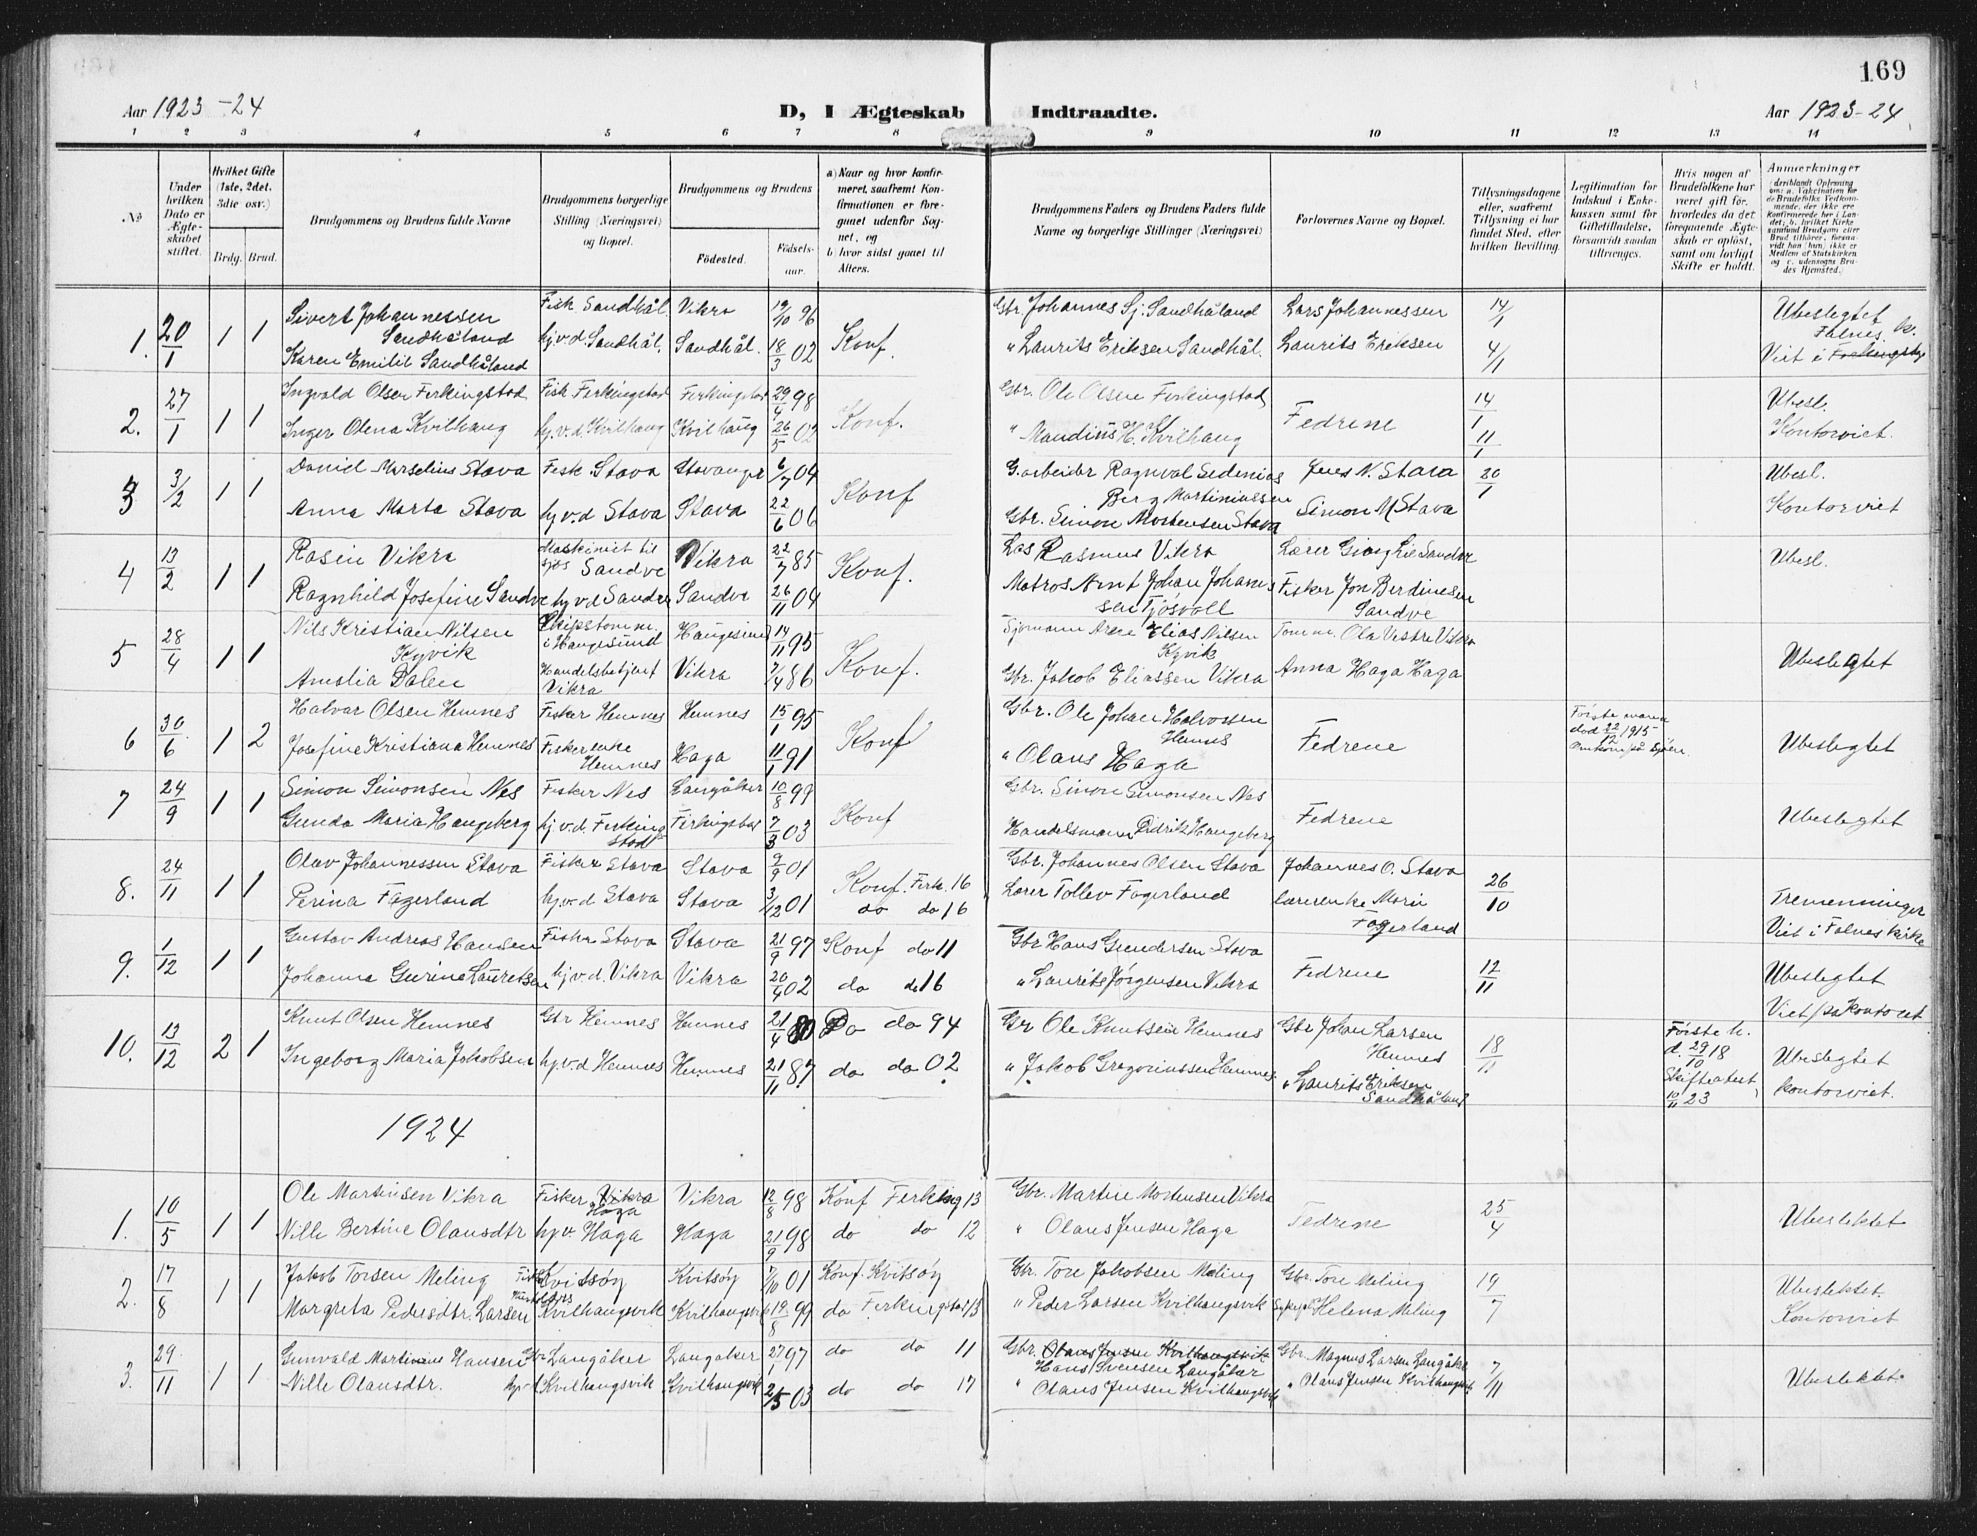 169
Aar 1923-24
D, I Ægteskab Indtraadte.
Aar 1923-24
1 2 3 4 5 6 7 8 9 10 11 12 13 14
№
Under hvilken Dato er Ægteskabet stiftet.
Hvilket Gifte (1ste, 2det, 3die osv.)
Brdg. Brud.
Brudgommens og Brudens fulde Navne
Brudgommens borgerlige Stilling (Næringsvei) og Bopæl.
Brudgommens og Brudens
Fødested.
Fødselsaar.
a) Naar og hvor konfirmeret, saafremt Konfirmationen er foregaaet udenfor Sognet, og
b) hvor sidst gaaet til Alters.
Brudgommens Faders og Brudens Faders fulde Navne og borgerlige Stillinger (Næringsvei)
Forlovernes Navne og Bopæl.
Tillysningsdagene eller, saafremt Tillysning ei har fundet Sted, efter hvilken Bevilling.
Legitimation for Indskud i Enkekassen samt for Giftetilladelse, forsaavidt saadan tiltrænges.
Hvis nogen af Brudefolkene har været gift før, hvorledes da det foregaaende Ægteskab er opløst, samt om lovligt Skifte er holdt.
Anmerkninger
1. 20/1 1 1 Sivert Johannessen Sandhåland Fisk Sandhål. Vikra 19/10 96 Konf. Gbr. Johannes Sj. Sandhåland Lars Johannessen 14/1 Ubeslegtet
Karen Emilie Sandhåland hj.v.d. Sandhål. Sandhål. 18/3 02 " Laurits Eriksen Sandhål. Laurits Eriksen 4/1 Viet i Falnes k.
2. 27/1 1 1 Ingvald Olsen Ferkingstad Fisk Ferkingstad Ferkingstad 29/4 98 Konf. Gbr. Ole Olsen Ferkingstad Fedrene 14/1 Ubesl.
Inger Olena Kvilhaug hj.v.d. Kvilhaug Kvilhaug 26/5 02 " Mandius H. Kvilhaug 11/1 Kontorviet.
3 3/2 1 1 Daniel Marselius Stava Fisk. Stava Stavanger 6/7 04 Konf G.arbeider Ragnval Sedenius Berg Martiniussen Jens N. Stava 20/1 Ubesl.
Anna Marta Stava hj.v.d Stava Stava 22/6 06 Gbr. Simon Mortensen Stava Simon M Stava Kontorviet
4 13/2 1 1 Rasin Vikra Maskinist til sjøs Sandve Vikra 22/7 85 Konf. Los Rasmus Vikra Lærer Georg Lie Sandve Ubesl.
Ragnhild Josefine Sandve hj.v.d Sandve Sandve 26/11 04 Matros Arnt Johan Johannessen Tjøsvoll Fisker Jon Berdinesen Sandve
5 28/4 1 1 Nils Kristian Nilsen Kyvik Skipstømm. i Haugesund Haugesund 14/11 95 Konf. Sjømann Arne Elias Nilsen Kyvik Tømm. Ola Vestre Vikra Ubeslegtet
Amalia Dalen Handelsbetjent Vikra Vikra 7/4 86 Gbr. Jakob Eliassen Vikra Anna Haga Haga
6 30/6 1 2 Halvar Olsen Hemnes Fisker Hemnes Hemnes 15/1 95 Konf Gbr. Ole Johan Halvorsen Hemnes Fedrene Første mann død 22/12 1915 omkom på sjøen Ubeslegtet
Josefine Kristiana Hemnes Fiskerenke Hemnes Haga 11/1 91 " Olaus Haga
7 24/9 1 1 Simon Simonsen Nes Fisker Nes Langåker 10/8 99 Konf Gbr. Simon Simonsen Nes Fedrene Ubeslegtet
Gunda Maria Haugeberg hj.v.d. Ferkingstad Ferkingstad 7/3 03 Handelsmann Didrik Haugeberg
8. 24/11 1 1 Olav Johannessen Stava Fisker Stava Stava 9/9 01 Konf. Ferk. 16 Gbr. Johannes Olsen Stava Johannes O. Stava 26/10 Tremenninger
Perina Fagerland hj.v.d Stava Stava 3/12 01 do do 16 Lærer Tollev Fagerland Lærerenke Mari Fagerland Viet i Falnes kirke
9. 1/12 1 1 Gustav Andreas Hansen Fisker Stava Stava 21/9 97 Konf do 11 Gbr Hans Gundersen Stava Fedrene 12/11 Ubeslegtet
Johanna Gurine Lauretsen hj.v.d. Vikra Vikra 20/4 02 do do 16 " Laurits Jørgensen Vikra Viet på kontoret
10. 13/12 2 1 Knut Olsen Hemnes Gbr Hemnes Hemnes 21/4 80 Do do 94 Gbr Ole Knutsen Hemnes Gbr Johan Larsen Hemnes 18/11 Første h. d. 29/10 18 Ubeslegtet
Ingeborg Maria Jakobsen hj.v.d Hemnes Hemnes 21/11 87 do do 02 " Jakob Gregoriussen Hemnes. " Laurits Eriksen Sandhåland Skifteattest 10/11 23 kontorviet.
1924
1. 10/5 1 1 Ole Martinsen Vikra Fisker Vikra Haga Vikra 12/8 98 Konf Ferking 13 Gbr. Martin Mortensen Vikra Fedrene 25/4 Ubeslektet
Nille Bertine Olausdtr hj.v. Haga Haga 21/9 98 do do 12 " Olaus Jensen Haga
2. 17/8 1 1 Jakob Torsen Meling Fisk Kvitsøy Kvitsøy 7/10 01 Konf. Kvitsøy Gbr. Tore Jakobsen Meling Gbr. Tore Meling 19/7 Ubeslektet.
Margreta Pedersdtr. Larsen Kvilhaugsvik Kvilhaugsvik 19/8 99 do Ferkingstad 13 " Peder Larsen Kvilhaugsvik Helena Meling Kontorviet
3. 29/11 1 1 Gunvald Martinius Hansen Gbr Langåker Langåker 27 97 do do 11 Gbr. Olaus Jensen Kvilhaugsvik Hans Svensen Langåker Gbr. Magnus Larsen Langåker 7/11 Ubeslektet
Nille Olausdtr. hj.v.d Kvilhaugsvik Kvilhaugsvik 2/5 03 do do 17 " Olaus Jensen Kvilhaugsvik " Olaus Jensen Kvilhaugsvik